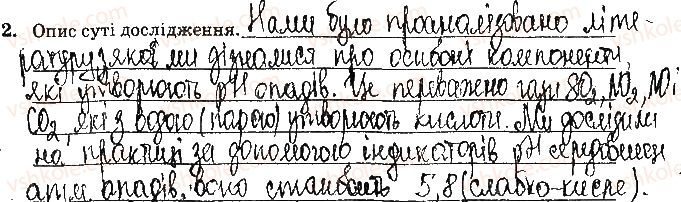 2. Опис суті дослідження. Нами було проаналізовано літе-
ратуру, з якої ми дізналися про основні компоненти,
які утворюють pH опадів. Це переважно гази SO2, NO2, NO і
CO2, які з водою (парою) утворюють кислоти. Ми дослідили
на практиці за допомогою індикаторів pH середовищ
атм. опадів, воно становить 5,8 (слабко-кисле).